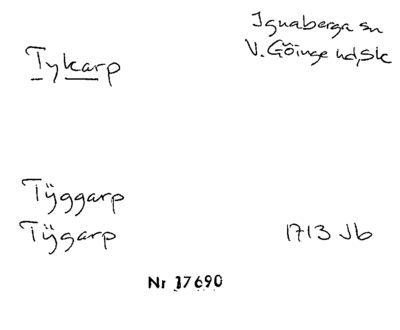 Tykarp
Ignaberga sn
V. Göinge hd, Sk
Tÿggarp
Tÿgarp 1713 Jb
Nr 17690